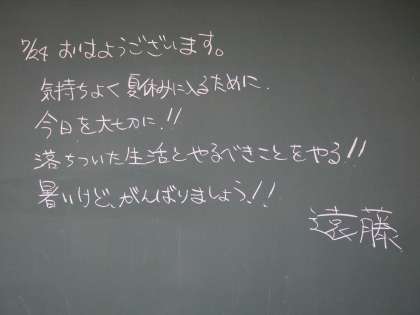 7/24 おはようございます。
気持ちよく夏休みに入るために.
今日を大切に!!
落ちついた生活とやるべきことをやる!!
暑いけど、がんばりましょう!!
遠藤